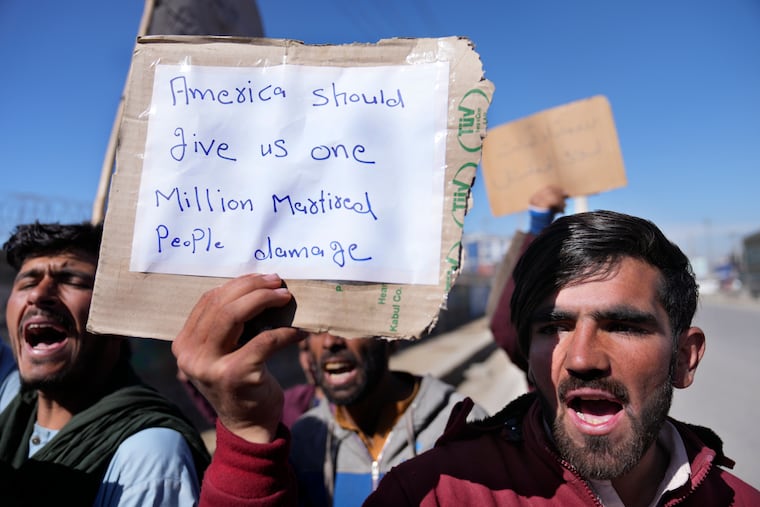 America should
give us one
Million Martired
People damage
TÜV
TÜV
Kabul Co.